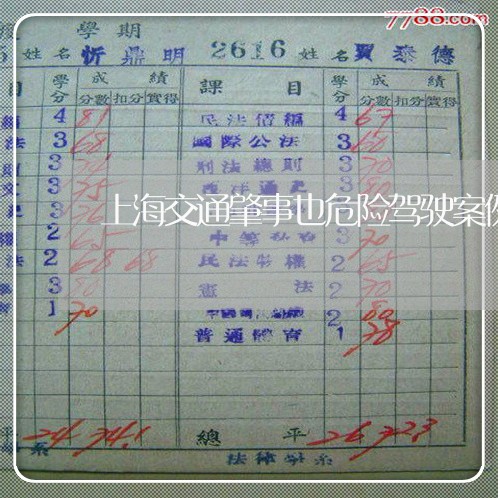 7788.com
學期
姓名 忻鼎明 2616 姓名 賈泰德
目 學分 成績 課目 學分 成績
分數 扣分 實得 分數 扣分 實得
4 81 民法債編 4 67
法 3 68 國際公法 3 60
3 刑法總則 3 70
3 75 西洋通史 3 80
上海交通肇事也危险驾驶案例
2 65 3 70
法 2 68 68 民法物權 2 65
3 80 憲法 2 70
1 70 2 80
普通體育 1 78
平 24 74.1 總平 26 72.3
系 法律學系